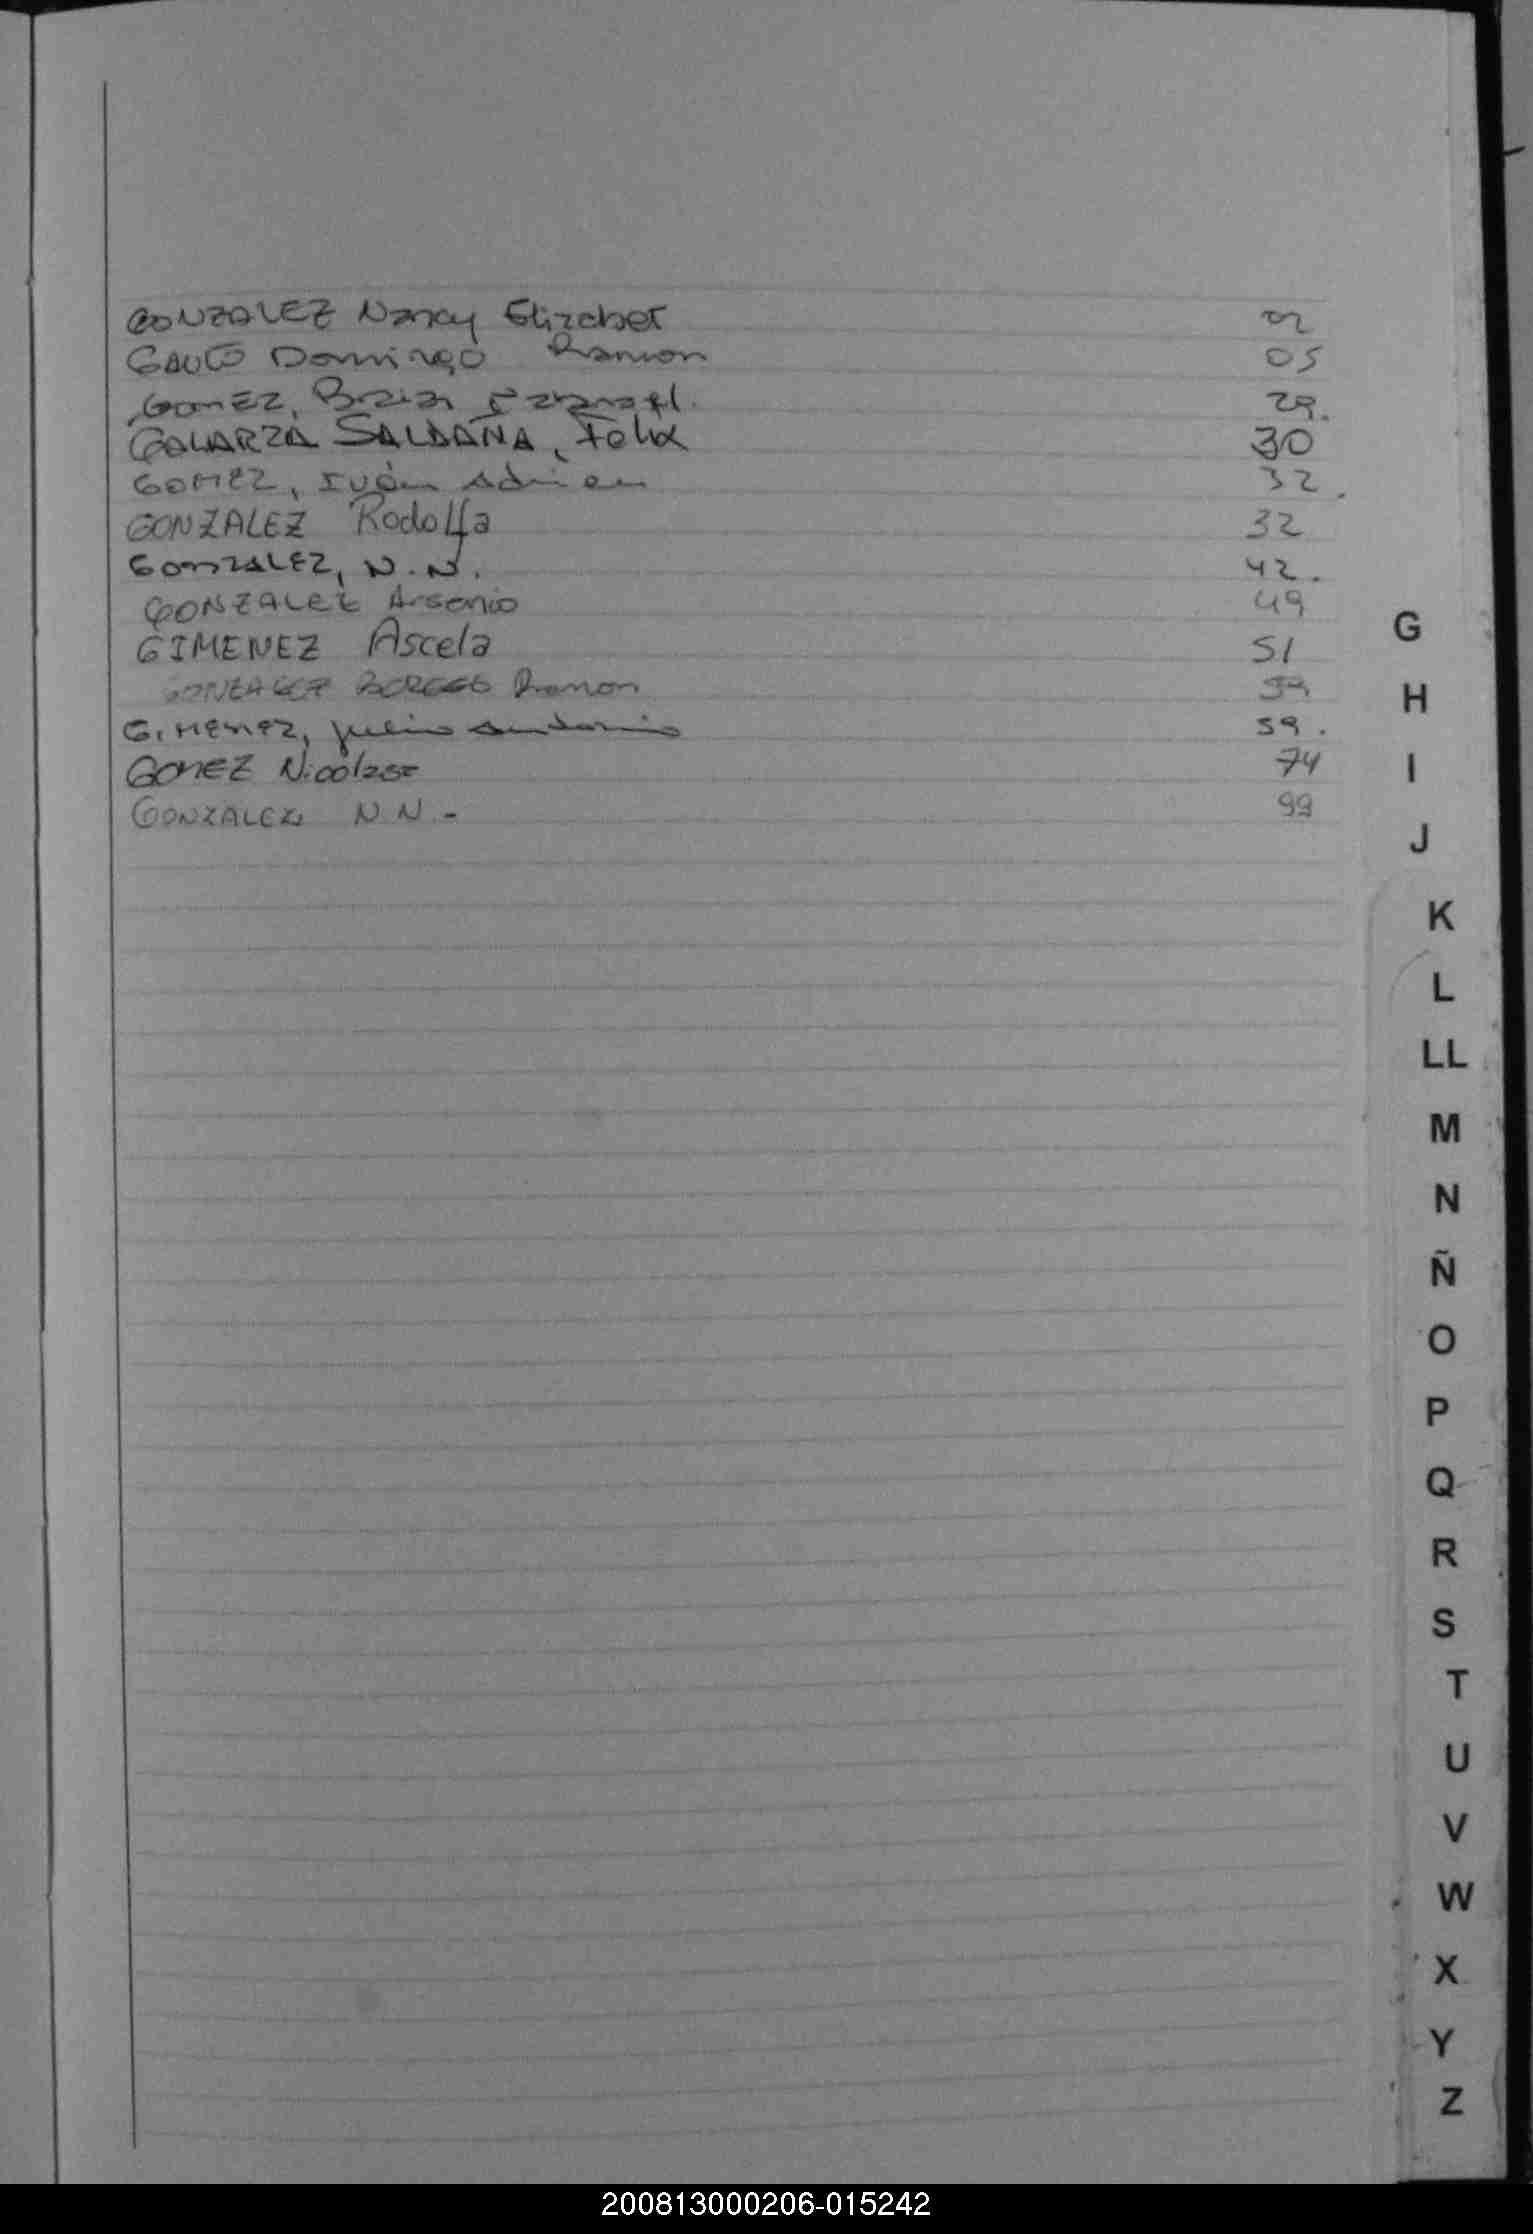 GONZALEZ Nancy Elizabet 02
GAUTO Domingo Ramon 05
GOMEZ, Brian 29.
GALARZA SALDAÑA, Felix 30
GOMEZ, Iván Adrian 32.
GONZALEZ Rodolfa 32
GONZALEZ, N.N. 42.
GONZALEZ Arsenio 49
GIMENEZ Ascela 51
GONZALEZ Ramon
GIMENEZ, Julio Antonio 59.
GOMEZ Nicolasa 74
GONZALEZ N N - 99
G
H
I
J
K
L
LL
M
N
Ñ
O
P
Q
R
S
T
U
V
W
X
Y
Z
200813000206-015242